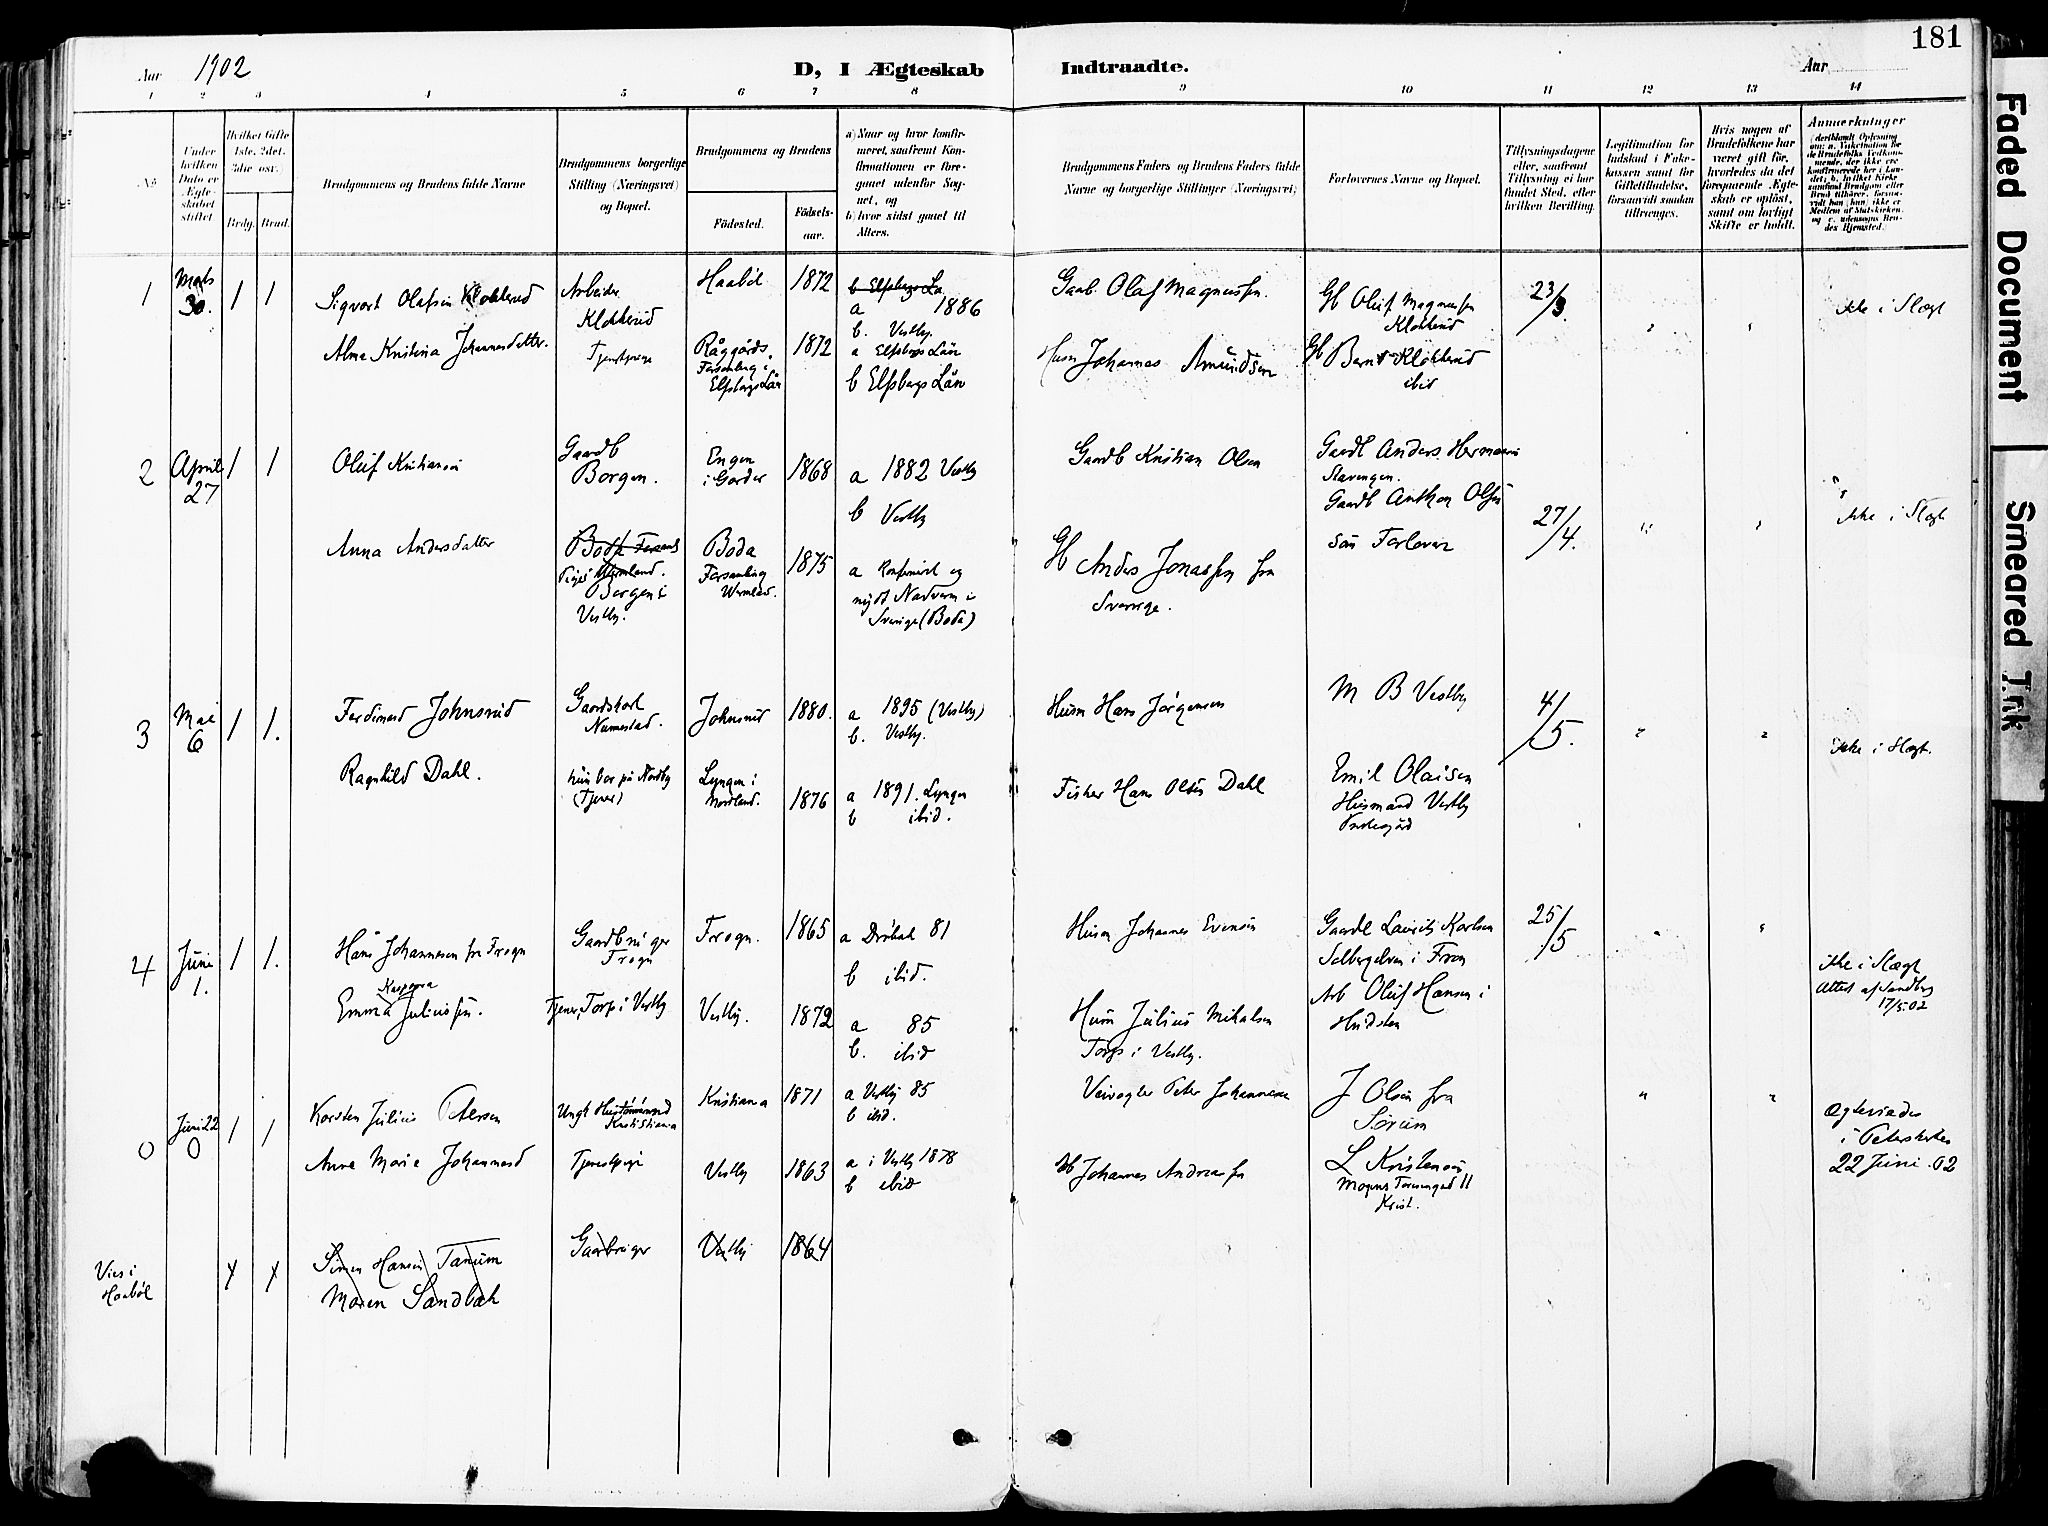 181
Aar 1902
D, I Ægteskab Indtraadte.
Aar
1 2 3 4 5 6 7 8 9 10 11 12 13 14
No.
Under hvilken Dato er Ægteskabet stiftet
Hvilket Gifte 1ste, 2det, 3die osv.
Brdg. Brud.
Brudgommens og Brudens fulde Navne
Brudgommens borgerlige Stilling (Næringsvei) og Bopæl.
Brudgommens og Brudens
Födested.
Födsels-aar.
a) Naar og hvor konfirmeret, saafremt Konfirmationen er foregaaet udenfor Sognet, og
b) hvor sidst gaaet til Alters.
Brudgommens Faders og Brudens Faders fulde Navne og borgerlige Stillinger (Næringsvei)
Forlovernes Navne og Bopæl.
Tillysningsdagene eller, saafremt Tillysning ei har fundet Sted, efter hvilken Bevilling.
Legitimation for Indskud i Enkekassen samt for Giftetilladelse, forsaavidt saadan tiltrænges.
Hvis nogen af Brudefolkene har været gift för, hvorledes da det foregaaende Ægteskab er oplöst, samt om lovligt Skifte er holdt.
Anmærkninger
1 Marts 30. 1 1
Sigvart Olafsen Klokkerud
Arbeider Klokkerud
Haabøl 1872
b Elfsborgs Län
a 1886
b. Vestby.
Gaab. Olaf Magnussen.
Gb Oluf Magnussen Klokkerud
23/3.
ikke i Slægt
Alma Kristina Johannesdatter.
Tjenstpige
Råggärds Församling i Elfsborgs Län
1872
a Elfsborgs Län
b Elfsborgs Län
Husm Johannes Amundsen
Gb Bernt Klokkerud ibid
2 April 27 1 1
Oluf Kristiansen
Gaardb Borgen.
Engen i Garder
1868
a 1882 Vestby
b Vestby
Gaardb Kristian Olsen
Gaardb Anders Hermansen Stavengen.
Gaardb Anthon Olsen
27/4.
ikke i Slægt
Anna Andersdatter
Borgen i Vestby.
Boda Forsamling Wermland.
1875
a Konfirmeret og nydt Nadveren i Sverige (Boda)
Gb Anders Jonassen fra Sverige.
som Forlover
3 Mai 6 1 1.
Ferdinand Johnsrud
Gaardskarl
Johnsrud 1880.
a 1895 (Vestby)
b. Vestby.
Husm Hans Jørgensen
M B Vestby
4/5.
ikke i Slægt.
Ragnhild Dahl.
hun bor på Nordby (Tjener)
Lyngen i Nordland.
1876
a 1891. Lyngen
b ibid.
Fisker Hans Olsen Dahl
Emil Olaisen Husmand Vestby Prestegård
4 Juni 1. 1 1.
Hans Johannesen fra Frogn
Gaardbruger Frogn
Frogn. 1865
a Drøbak 81
b ibid.
Husm Johannes Evensen
Gaardb Laurits Karlsen Solbergelven i Fron
25/5
ikke i Slægt
Attest af Sandberg 17/5.02
Kaspara
Emma Juliussen.
Tjener, Torp i Vestby
Vestby. 1872
a 85
b. ibid
Husm Julius Mikalsen Torp i Vestby.
Arb Oluf Hansen i Hvidsten
0 Juni 22 0 1 1
Karsten Julius Petersen
Ungk Kristiania
Kristiania 1871
a Vestby 85
b ibid.
Veivogter Peter Johannesen
J Olsen fra Sørum
Ægteviede i Peterskirken 22 Juni .02
Anne Marie Johannesd
Tjenestepige
Vestby 1863
a i Vestby 1878
b ibid
Gb Johannes Andreassen
L Kristensen
Mogens Torsensgad 11 Krist.
Vies i Haabøl
Simen Hansen Tanum
Gaardbruger
Vestby 1864
Maren Sandbæk
Faded Document
Smeared Trk